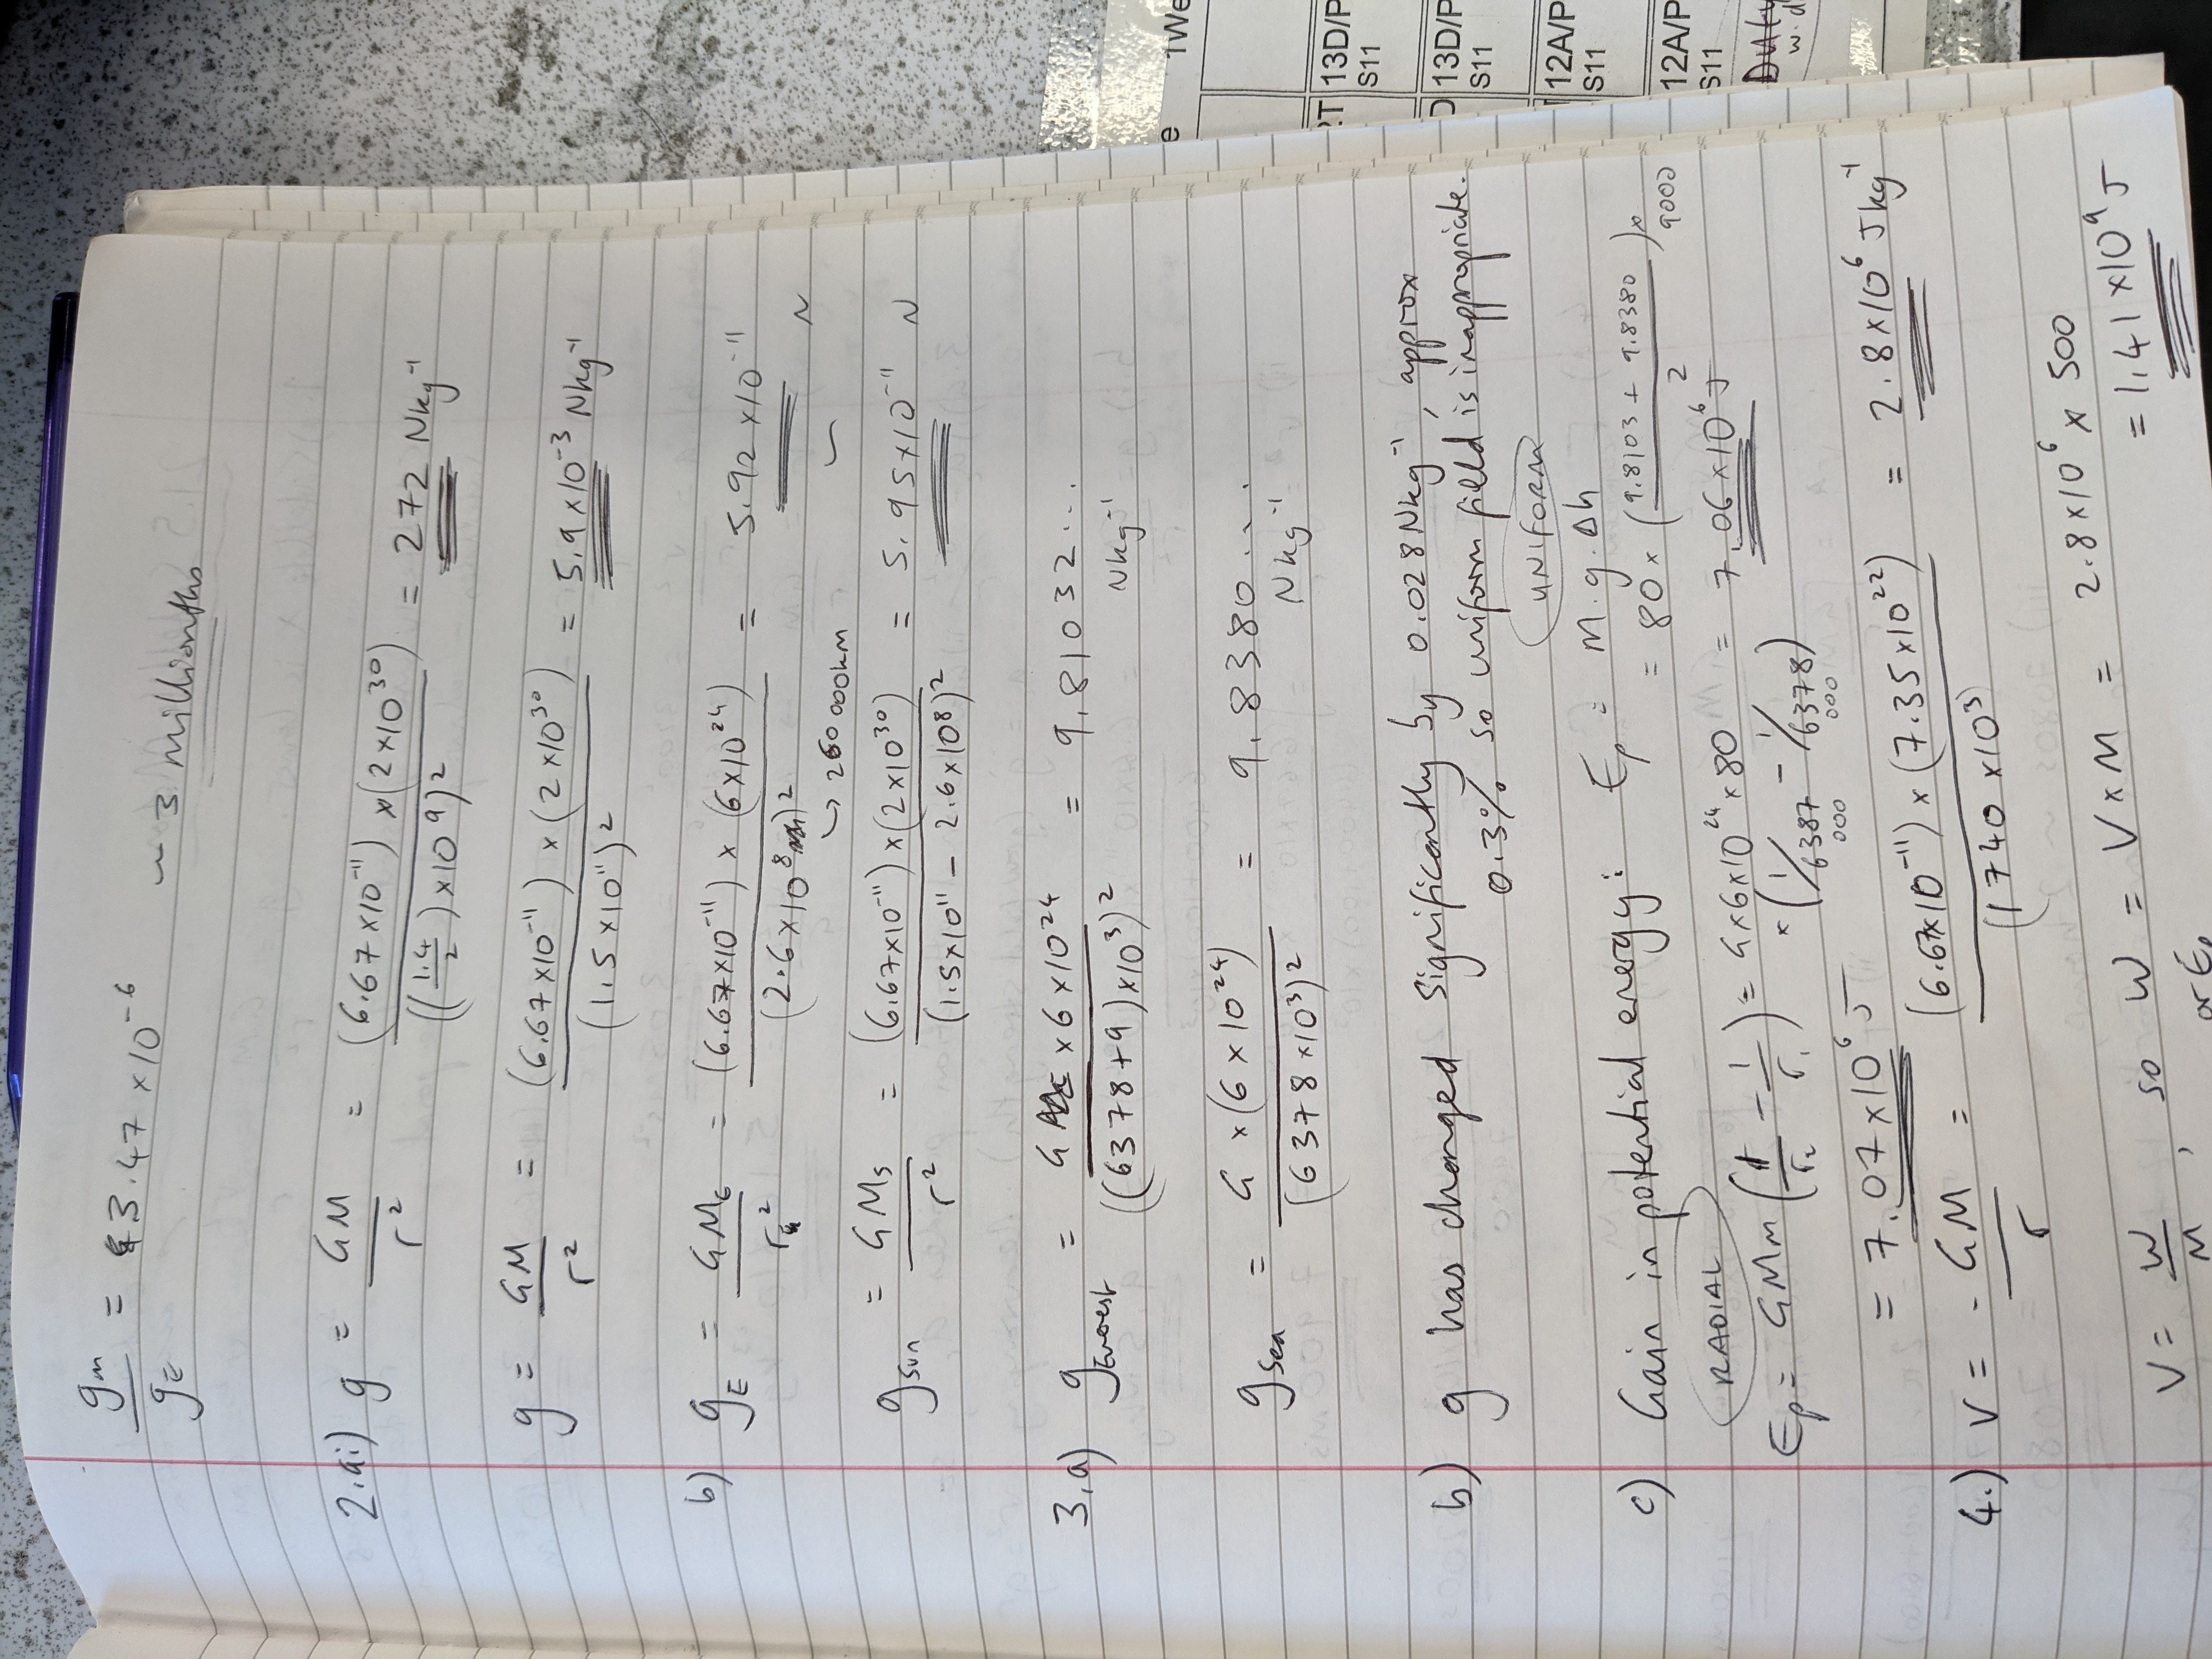 gm/gE = 3.47 × 10⁻⁶ ~ 3 millionths
2.ai) g = GM/r² = (6.67×10⁻¹¹) × (2×10³⁰) / ((1.4/2)×10⁹)² = 272 Nkg⁻¹
g = GM/r² = (6.67×10⁻¹¹) × (2×10³⁰) / (1.5×10¹¹)² = 5.9×10⁻³ Nkg⁻¹
b) gE = GME/r² = (6.67×10⁻¹¹) × (6×10²⁴) / (2.6×10⁸)² = 5.92×10⁻¹¹ N
↳ 260 000km
gsun = GMs/r² = (6.67×10⁻¹¹)×(2×10³⁰) / (1.5×10¹¹ - 2.6×10⁸)² = 5.95×10⁻¹¹ N
3.a) gEverest = G × 6 × 10²⁴ / ((6378+9)×10³)² = 9.81032... Nkg⁻¹
gsea = G × (6×10²⁴) / (6378×10³)² = 9.8380... Nkg⁻¹
b) g has changed significantly by 0.028Nkg⁻¹, approx
0.3% so uniform field is inappropriate.
UNIFORM
c) Gain in potential energy: Ep = m.g.Δh
= 80 × (9.8103 + 9.8380 / 2) × 9000
= 7.06×10⁶ J
RADIAL
Ep = GMm (1/r₂ - 1/r₁) = G×6×10²⁴×80
× (1/6387 000 - 1/6378 000)
= 7.07×10⁶ J
4.) V = - GM/r = (6.67×10⁻¹¹) × (7.35×10²²) / (1740×10³) = 2.8×10⁶ Jkg⁻¹
V = W/M, so W = V×M = 2.8×10⁶ × 500
or E
= 1.41×10⁹ J
1We
13D/P
S11
13D/P
S11
12A/P
S11
12A/P
S11
Duty